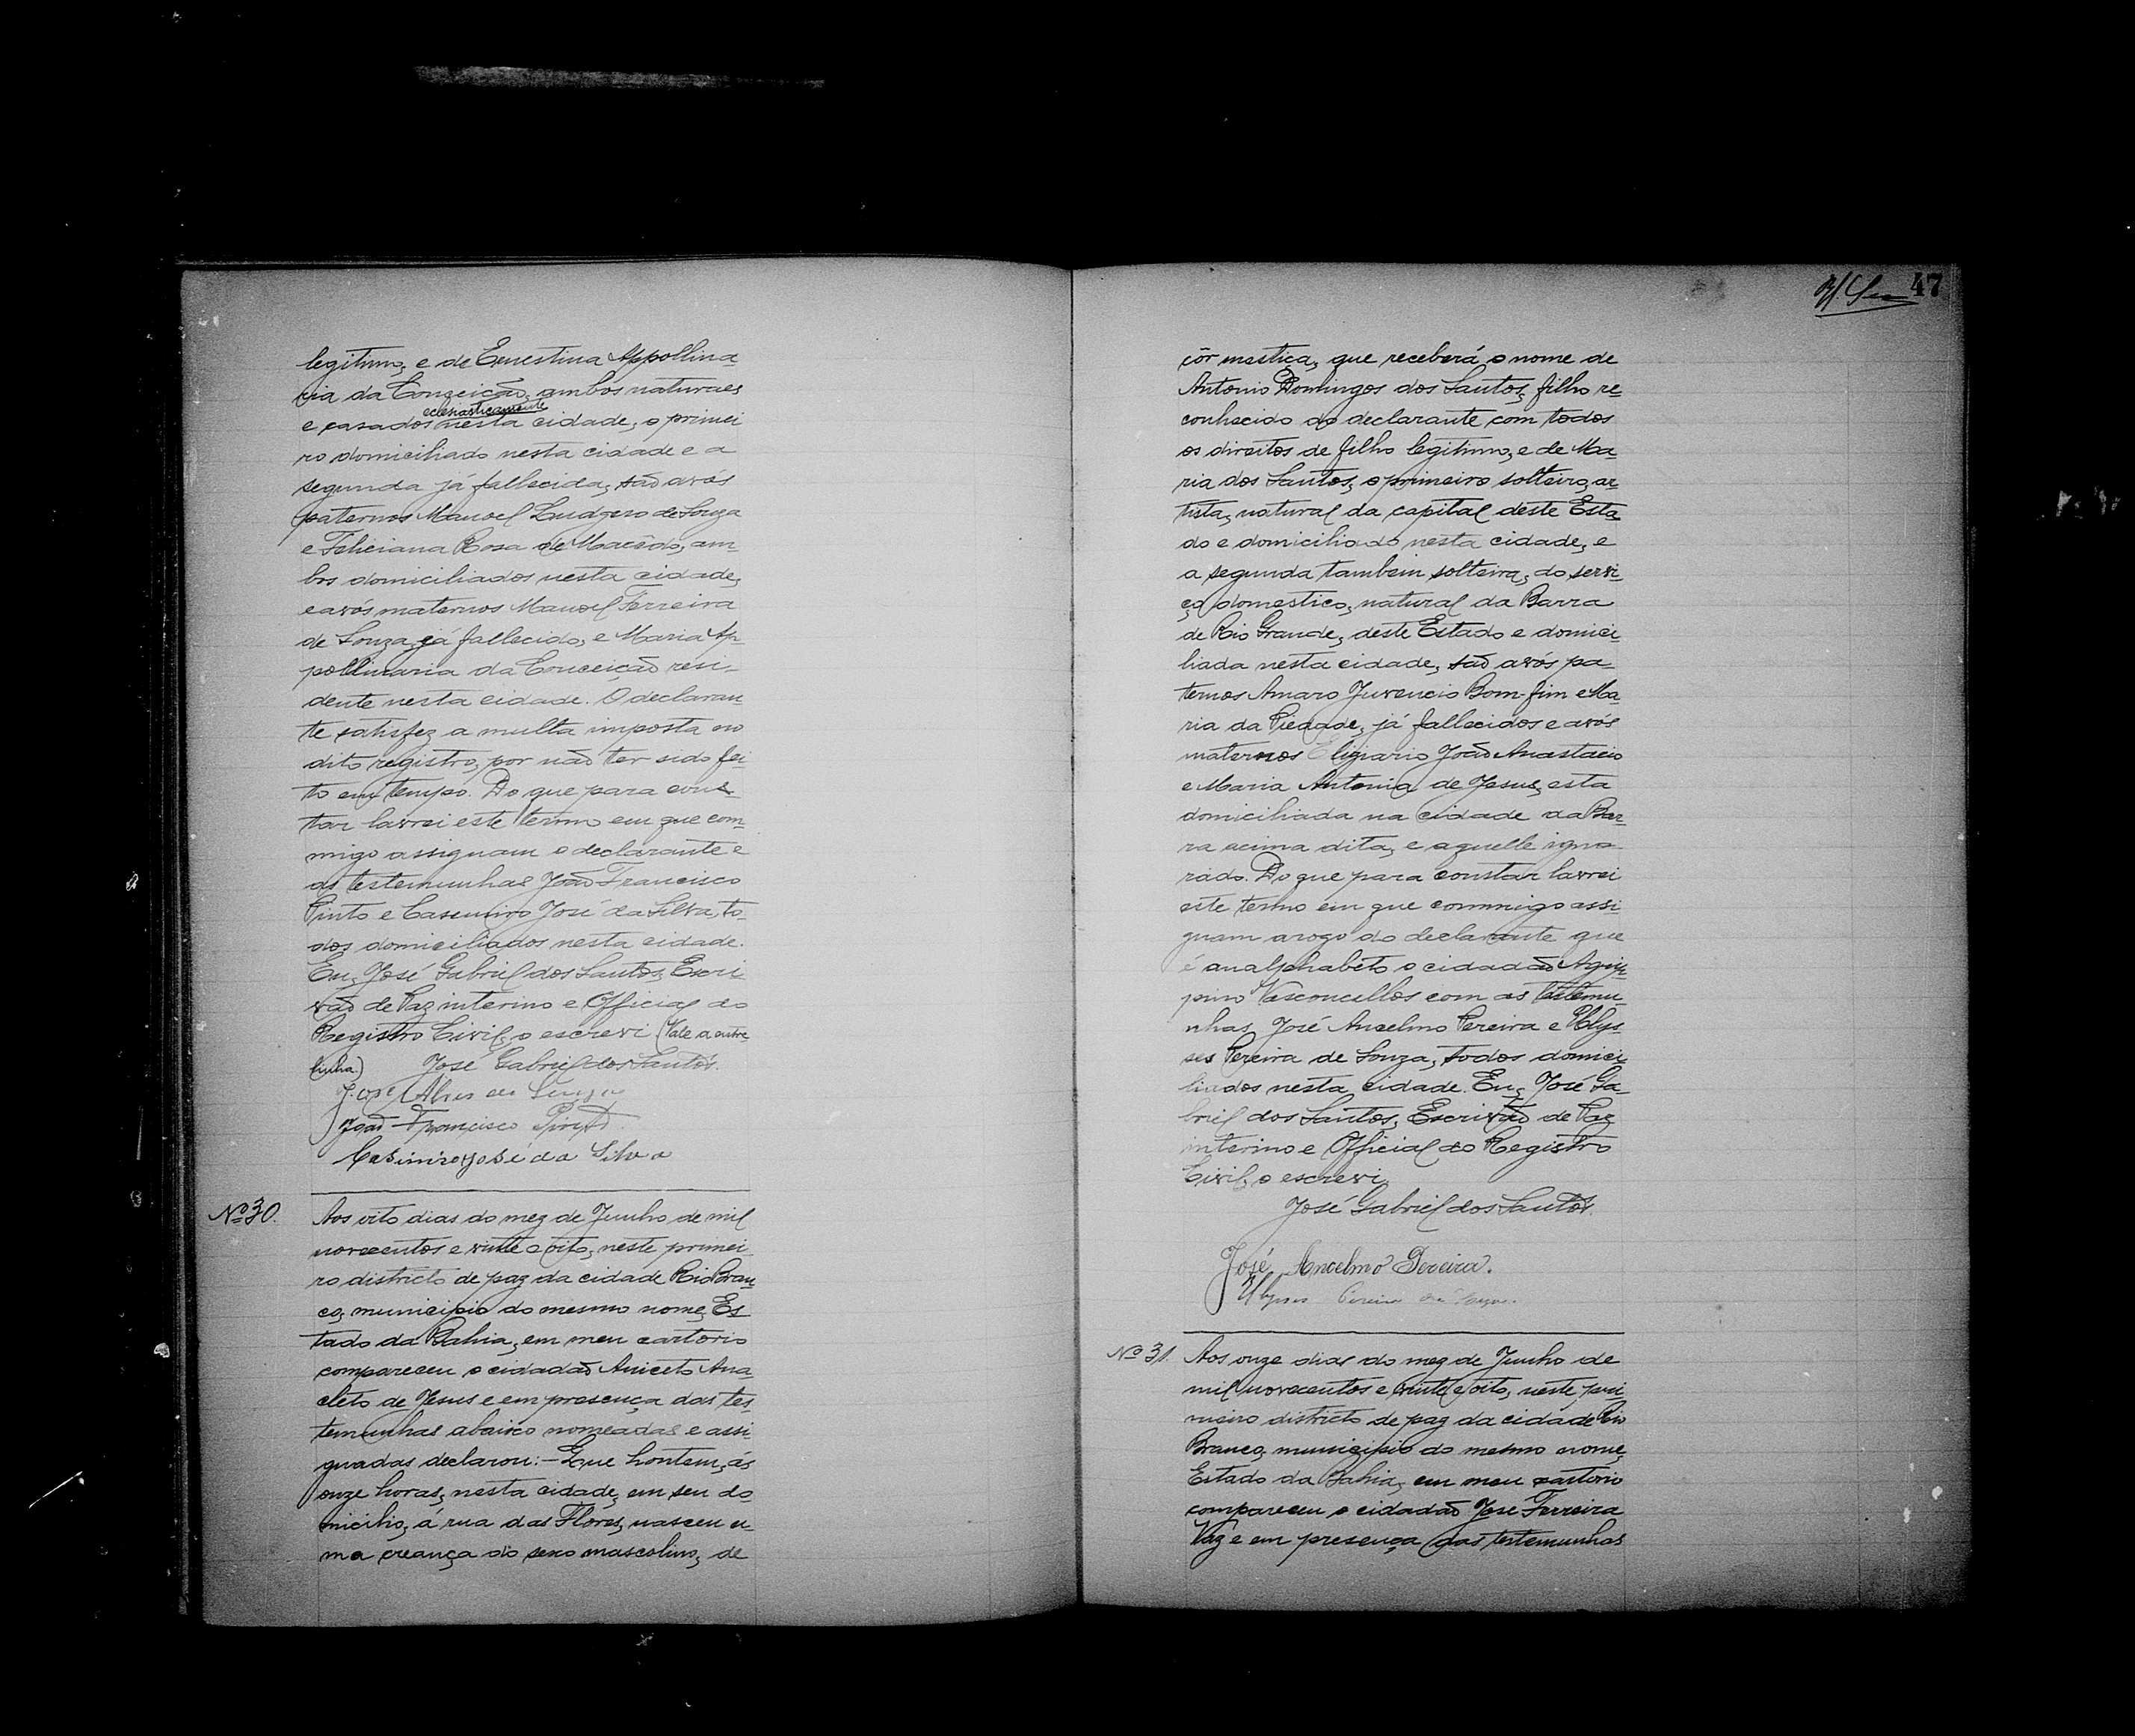 legitimo, e de Ernestina Appollina
ria da Conceição, ambos naturaes
ecclesiasticamente
e casados nesta cidade, o primei
ro domiciliado nesta cidade e a
segunda já fallecida, são avós
paternos Manoel Ludgero de Souza
e Feliciana Rosa de Macêdo, am-
bos domiciliados nesta cidade,
e avós maternos Manoel Ferreira
de Souza já fallecido, e Maria Ap-
pollinaria da Conceição resi-
dente nesta cidade. O declaran
te satisfez a multa imposta no
dito registro, por não ter sido fei-
to em tempo. Do que para cons-
tar lavrei este termo em que com-
migo assignam o declarante e
as testemunhas João Francisco
Pinto e Casemiro José da Silva, to-
dos domiciliados nesta cidade.
Eu, José Gabriel dos Santos, Escri-
vão de Paz interino e Official do
Registro Civil, o escrevi (Vale a entre-
linha.) José Gabriel dos Santos.
José Alves de Souza
João Francisco Pinto
Casimiro José da Silva
Nº 30.
Aos oito dias do mez de Junho de mil
novecentos e vinte e oito, neste primei-
ro districto de paz da cidade Rio Bran
co, municipio do mesmo nome, Es-
tado da Bahia, em meu cartorio
compareceu o cidadão Aniceto Ana
cleto de Jesus e em presença das tes-
temunhas abaixo nomeadas e assi-
gnadas declarou: - Que hontem, ás
onze horas, nesta cidade, em seu do-
micilio, á rua das Flores, nasceu u-
ma creança do sexo mascolino, de
47
côr mestiça, que receberá o nome de
Antonio Domingos dos Santos, filho re-
conhecido do declarante com todos
os direitos de filho legitimo, e de Ma-
ria dos Santos, o primeiro solteiro, ar-
tista, natural da capital deste Esta-
do e domiciliado nesta cidade, e
a segunda tambem solteira, do servi-
ço domestico, natural da Barra
de Rio Grande, deste Estado e domici-
liada nesta cidade, são avós pa-
ternos Amaro Juvencio Bom-fim e Ma
ria da Piedade, já fallecidos e avós
maternos Eligiario João Anastacio
e Maria Antonia de Jesus, esta
domiciliada na cidade da Bar-
ra acima dita, e aquelle igno-
rado. Do que para constar lavrei
este termo em que commigo assi-
gnam a rogo do declarante que
é analphabeto o cidadão Agrip-
pino Vasconcellos com as testemu-
nhas, José Ancelmo Pereira e Ulys-
ses Pereira de Souza, todos domici-
liados nesta cidade. Eu, José Ga-
briel dos Santos, Escrivão de Paz
interino e Official do Registro
Civil, o escrevi.
José Gabriel dos Santos.
José Ancelmo Pereira.
Ulysses Pereira de Souza.
Nº 31.
Aos onze dias do mez de Junho de
mil novecentos e vinte e oito, neste pri-
meiro districto de paz da cidade Rio
Branco, municipio do mesmo nome,
Estado da Bahia, em meu cartorio
compareceu o cidadão José Ferreira
Vaz e em presença das testemunhas